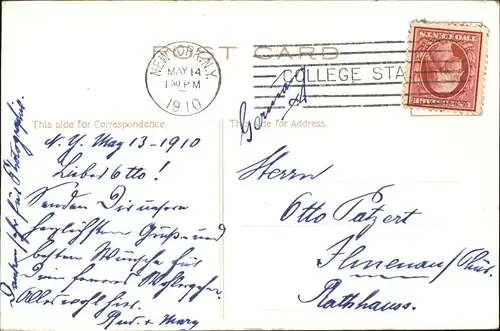 POST CARD
NEW YORK, N.Y.
MAY 14
1 30 PM
1910
COLLEGE STA
Germany
This side for Correspondence
This side for Address.
N. Y. May 13 - 1910
Lieber Otto!
Senden Dir unsere
herzlichsten Grüße und
besten Wünsche für
Dein ferneres Wohlergehen.
Alles wohl hier.
Rud. + Mary
Danken sehr für Photographie.
Herrn
Otto Patzert
Ilmenau/Thür.
Rathhauss.